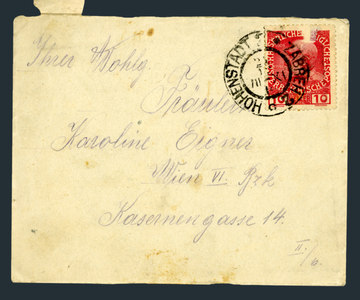 Ihrer Wohlg
Fräulein
Karoline Eigner
Wien VI. Bzk
Kasernengasse 14.
II/6.
HOHENSTADT
ZÁBŘEH
10